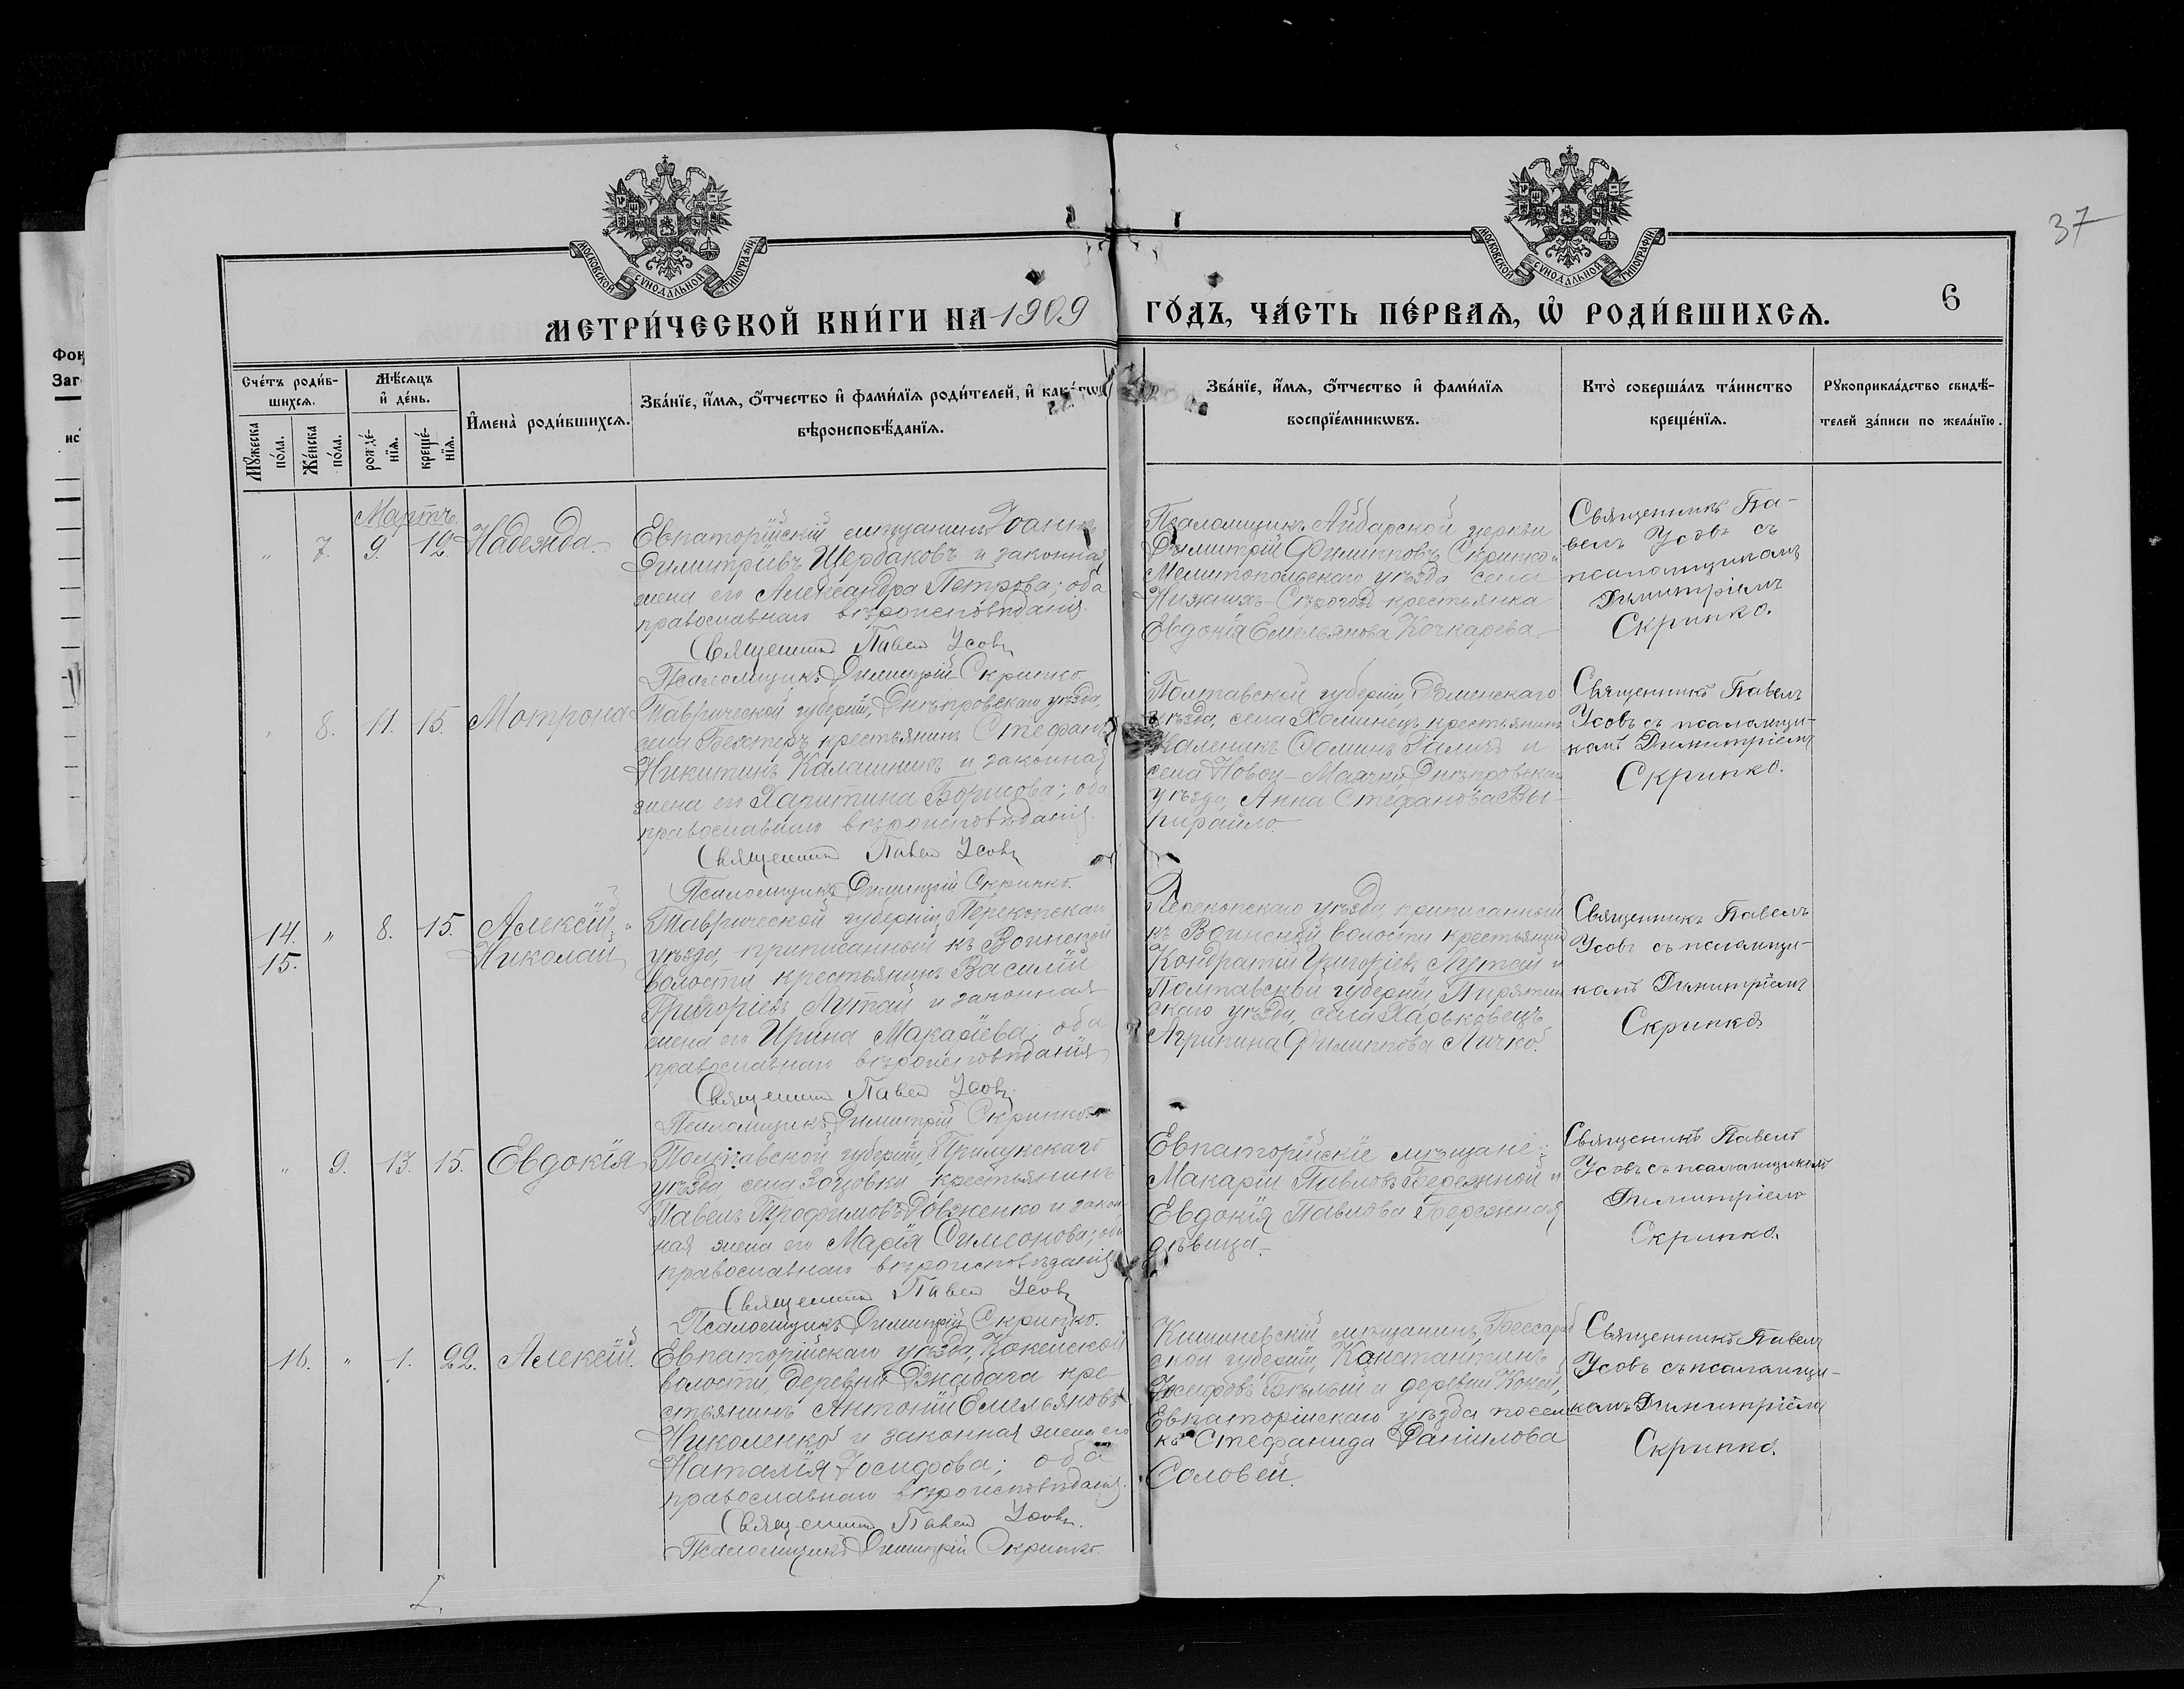 37
МОСКОВСКОЙ СУНОДАЛЬНОЙ ТИПОГРАФІИ
МОСКОВСКОЙ СУНОДАЛЬНОЙ ТИПОГРАФІИ
МЕТРИ́ЧЕСКОЙ КНИ́ГИ НА 1909 ГО́ДЪ, ЧА́СТЬ ПЕ́РВАѦ, Ѡ҆ РОДИ́ВШИХСѦ.
6
Сче́тъ роди́в-
шихсѧ.
Мꙋжеска
по́ла.
Же́нска
по́ла.
Мѣ́сѧцъ
и҆ де́нь.
рожде́-
нїѧ.
креще́-
нїѧ.
И҆мена̀ роди́вшихсѧ.
Зва́нїе, и҆́мѧ, ѻ҆́тчество и҆ фами́лїѧ роди́телей, и҆ как
вѣроисповѣ́данїѧ.
Зва́нїе, и҆́мѧ, ѻ҆́тчество и҆ фами́лїѧ
воспрїе́мникѡвъ.
Кто̀ соверша́лъ та́инство
креще́нїѧ.
Рꙋкоприкла́дство свидѣ́-
телей за́писи по жела́нїю.
Мартъ.
" 7. 9. 12. Надежда.
Евпаторійскій мѣщанинъ Іоаннъ
Димитріевъ Щербаковъ и законная
жена его Александра Петрова; оба
православнаго вѣроисповѣданія.
Священникъ Павелъ Усовъ
Псаломщикъ Димитрій Скрипко.
Псаломщикъ Айбарской церкви
Димитрій Филипповъ Скрипко и
Мелитопольскаго уѣзда села
Нижнихъ-Сѣрогозъ крестьянка
Евдокія Емельянова Кочкарева.
Священникъ Па-
велъ Усовъ съ
псаломщикомъ
Димитріемъ
Скрипко.
" 8. 11. 15. Мотрона
Таврической губерніи, Днѣпровскаго уѣзда,
села Бехтеръ крестьянинъ Стефанъ
Никитинъ Калашникъ и законная
жена его Харитина Борисова; оба
православнаго вѣроисповѣданія.
Священникъ Павелъ Усовъ
Псаломщикъ Димитрій Скрипко.
Полтавской губерніи, Роменскаго
уѣзда, села Хоминецъ крестьянинъ
Каленикъ Ѳоминъ Галичъ и
села Новой-Маячки, Днѣпровскаго
уѣзда, Анна Стефанова Вы-
пирайло.
Священникъ Павелъ
Усовъ съ псаломщи-
комъ Димитріемъ
Скрипко.
14. " 8. 15. Алексій и
15. Николай
Таврической губерніи, Перекопскаго
уѣзда, приписанный къ Воинской
волости крестьянинъ Василій
Григоріевъ Лутай и законная
жена его Ирина Макаріева; оба
православнаго вѣроисповѣданія
Священникъ Павелъ Усовъ
Псаломщикъ Димитрій Скрипко.
Перекопскаго уѣзда, приписанный
къ Воинской волости крестьянинъ
Кондратій Григоріевъ Лутай и
Полтавской губерніи, Пирятин
скаго уѣзда, села Харьковецъ
Агрипина Филиппова Личко.
Священникъ Павелъ
Усовъ съ псаломщи-
комъ Димитріемъ
Скрипко
" 9. 13. 15. Евдокія
Полтавской губерніи, Прилукскаго
уѣзда, села крестьянинъ
Павелъ Трофимовъ Довженко и закон-
ная жена его Марія Симеонова; оба
православнаго вѣроисповѣданія.
Священникъ Павелъ Усовъ
Псаломщикъ Димитрій Скрипко.
Евпаторійскіе мѣщане:
Макарій Павловъ Бережной и
Евдокія Павлова Бережная
дѣвица.
Священникъ Павелъ
Усовъ съ псаломщикомъ
Димитріемъ
Скрипко.
16. " 1. 22. Алексій.
Евпаторійскаго уѣзда, Кокейской
волости, деревни Джабага кре-
стьянинъ Антоній Емельяновъ
Николенко и законная жена его
Наталія Іосифова; оба
православнаго вѣроисповѣданія.
Священникъ Павелъ Усовъ.
Псаломщикъ Димитрій Скрипко.
Кишиневскій мѣщанинъ, Бессараб
ской губерніи, Константинъ
Іосифовъ Бѣлый и деревни Кокей,
Евпаторійскаго уѣзда поселян
ка Стефанида Даніилова
Соловей.
Священникъ Павелъ
Усовъ съ псаломщи-
комъ Димитріемъ
Скрипко.